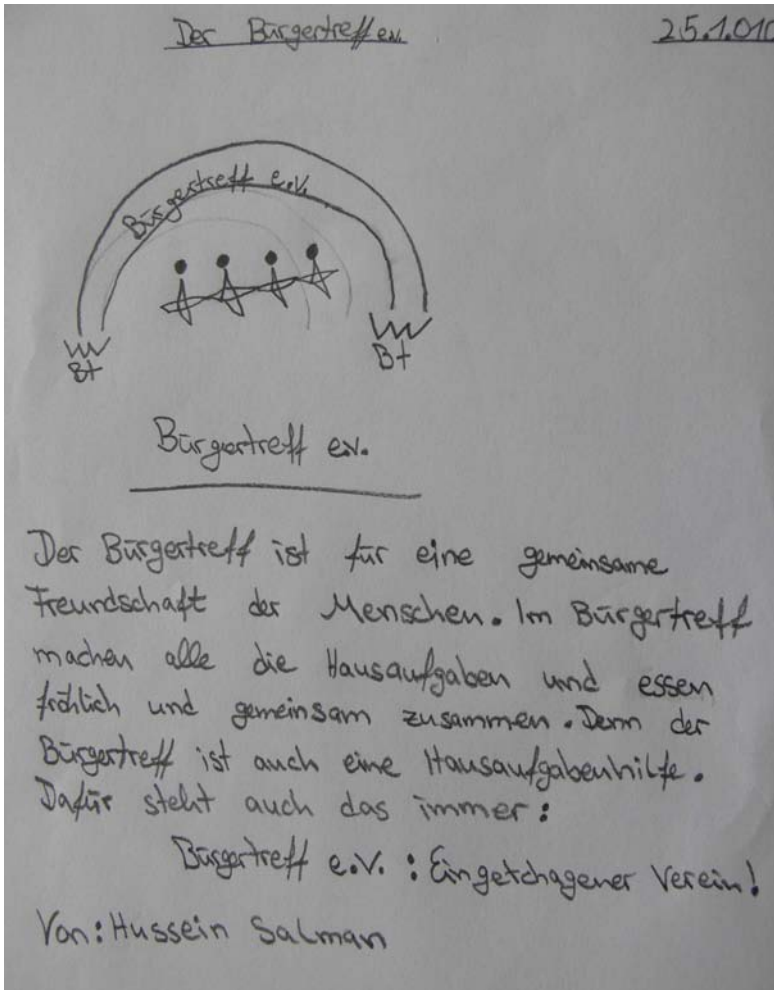 Der Bürgertreff e.V.
25.1.010
Bürgertreff e.V.
Bt
Bt
Bürgertreff e.V.
Der Bürgertreff ist für eine gemeinsame
Freundschaft der Menschen. Im Bürgertreff
machen alle die Hausaufgaben und essen
fröhlich und gemeinsam zusammen. Denn der
Bürgertreff ist auch eine Hausaufgabenhilfe.
Dafür steht auch das immer:
Bürgertreff e.V. : Eingetchagener Verein!
Von: Hussein Salman